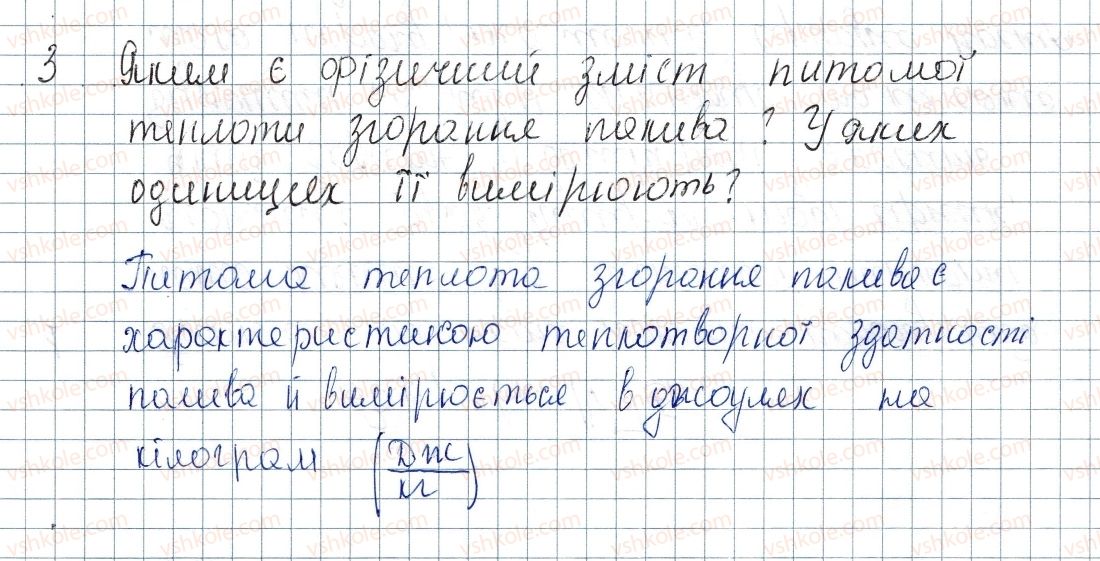 3 Яким є фізичний зміст питомої
теплоти згорання палива? У яких
одиницях її вимірюють?
Питома теплота згорання палива є
характеристикою теплотворної здатності
палива й вимірюється в джоулях на
кілограм (Дж/кг)
vshkole.com